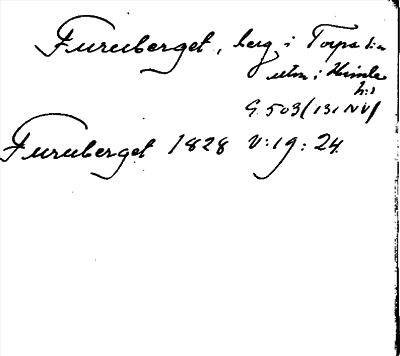 Furuberget, berg i Torpa s:n
utm i Himle
h:d
G. 503 (131 NV)
Furuberget 1828 V:19:24